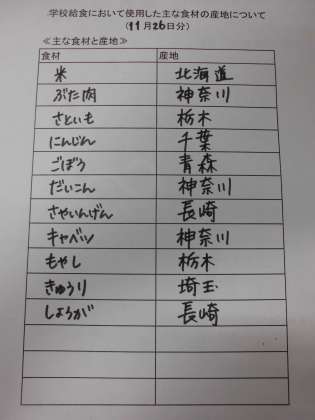 学校給食において使用した主な食材の産地について
(11月26日分)
≪主な食材と産地≫
食材 産地
米 北海道
ぶた肉 神奈川
さといも 栃木
にんじん 千葉
ごぼう 青森
だいこん 神奈川
さやいんげん 長崎
キャベツ 神奈川
もやし 栃木
きゅうり 埼玉
しょうが 長崎